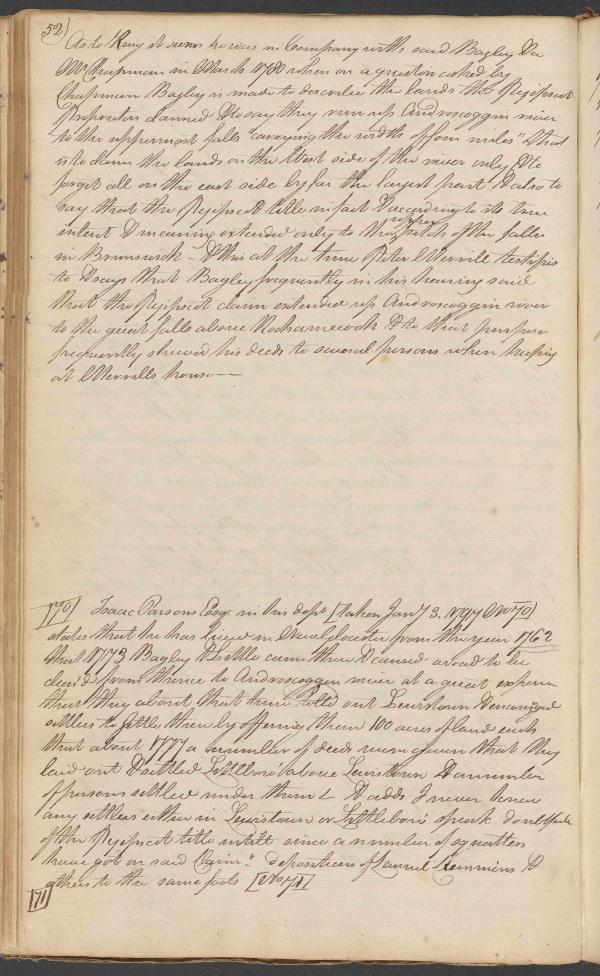 52)
As to King it seems he was in Company with said Bagley &
Mr Chapman in March 1780 when on a question asked by
Chapman Bagley is made to describe the lands the Pejepscot
Proprietors claimed & to say they run up Androscoggin river
to the uppermost falls "carrying the width of four miles" & that
is to claim the lands on the West side of the river only & to
forget all on the east side by far the largest part & also to
say that the Pejepscot title in fact & according to its true
intent & meaning extended only to the upper pitch of the falls
in Brunswick - & this at the time Peter Merrill testifies
to & says that Bagley frequently in his hearing said
that the Pejepscot claim extended up Androscoggin river
to the great falls above Rockamecook & to that purpose
frequently shewed his deeds to several persons when keeping
at Merrills house—
[70] Isaac Parsons Esqr in his depo [taken Jany 3. 1797 No 70]
states that he has lived in New Glocester from the year 1762
that 1773 Bagley & Little came there & caused a road to be
clear'd from thence to Androscoggin river at a great expence
that they about that time lotted out Lewistown & encouraged
settlers to settle there by offering them 100 acres of land each
that about 1777 a number of deeds were given that they
laid out & settled Littleboro' above Lewistown & a number
of persons settled under them & adds I never knew
any settlers either in Lewistown or Littleboro' speak
of the Pejepscot title until since a number of squatters
have got on said Claim" depositions of Lemuel Cummins &
others to the same facts [No 71]
[71]